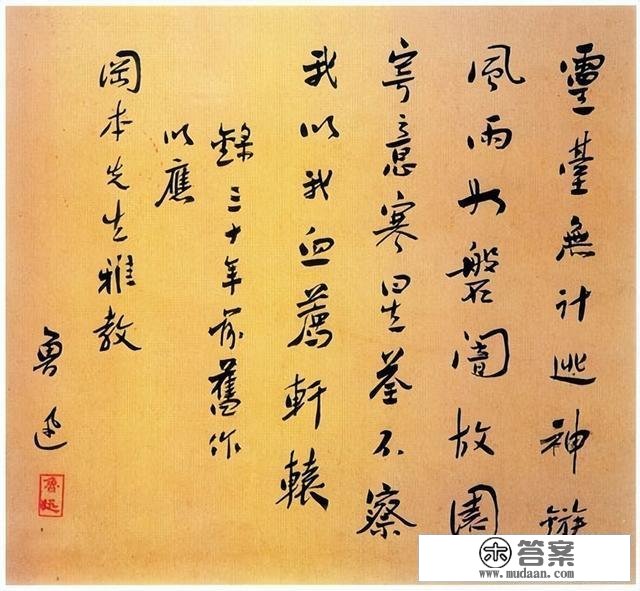 靈臺無計逃神鏃
風雨如磐闇故園
寄意寒星荃不察
我以我血薦軒轅
錄三十年前舊作
以應
岡本先生雅教
魯迅
魯迅
答案
www.mudaan.com